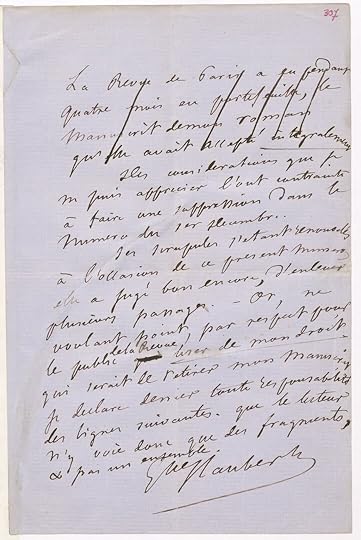 337
La Revue de Paris a eu pendant
quatre mois en portefeuille, le
manuscrit de mon roman
qu'elle avait accepté intégralement
Des considérations que je
ne puis apprécier l'ont contrainte
à faire une suppression dans le
numero du 1er décembre..
Ses scrupules s'étant renouvelés
à l'occasion de ce présent numero,
elle a jugé bon encore, d'enlever
plusieurs passages. - Or, ne
voulant point par respect pour
le public de la Revue, user de mon droit
qui serait de retirer mon manuscrit
je déclare denier toute responsabilité
des lignes suivantes. que le lecteur
n'y voie donc que des fragments,
& pas un ensemble.
Gve Flaubert